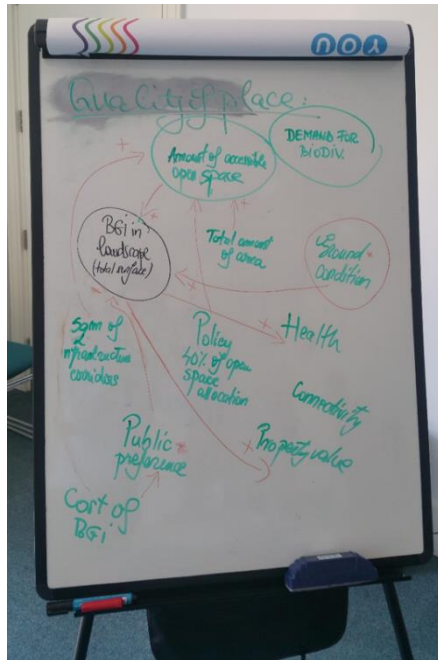 Quality of place:
Amount of accessible
open space
DEMAND FOR
BioDiv.
BGi in
landscape
(total surface)
Total amount
of area
Ground
condition
sqm of
infrastructure
corridors
Policy
40% of open
space
allocation
Health
Connectivity
Public
preference
Property value
Cost of
BGi